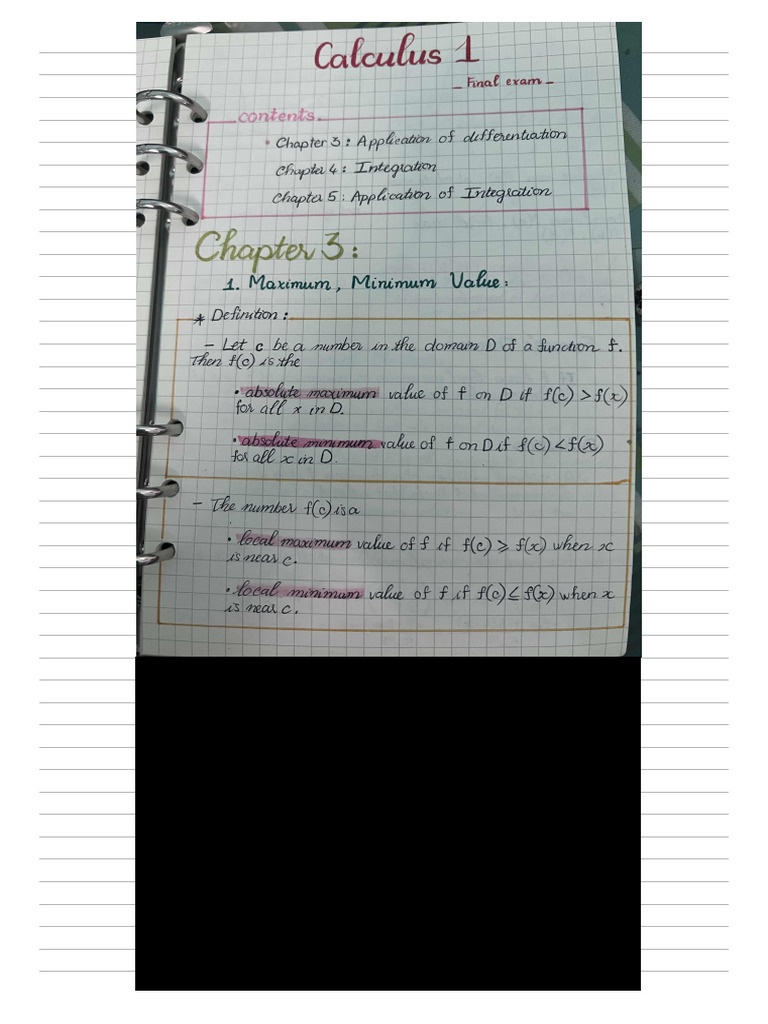 Calculus 1
- Final exam -
contents.
• Chapter 3 : Application of differentiation
Chapter 4 : Integration
Chapter 5 : Application of Integration
Chapter 3 :
1. Maximum, Minimum Value :
* Definition :
- Let c be a number in the domain D of a function f.
Then f(c) is the
• absolute maximum value of f on D if f(c) > f(x)
for all x in D.
• absolute minimum value of f on D if f(c) < f(x)
for all x in D.
- The number f(c) is a
• local maximum value of f if f(c) ⩾ f(x) when x
is near c.
• local minimum value of f if f(c) ≤ f(x) when x
is near c.